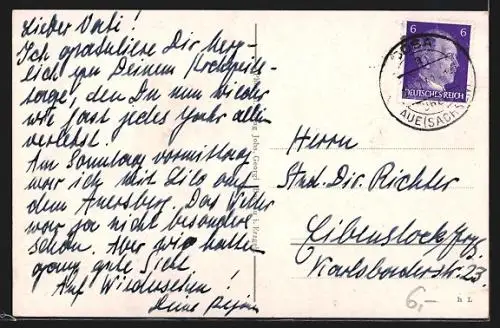 Lieber Vati!
Ich gratuliere Dir herz-
lich zu Deinem Hochzeits-
tage, den Du nun wieder
wie fast jedes Jahr allein
verlebst.
Am Sonntag vormittag
war ich mit Lilo auf
dem Auersberg. Das Wetter
war ja nicht besonders
schön. Aber wir hatten
ganz gute Sicht
Auf Wiedersehen!
Deine
6 6
DEUTSCHES REICH
AUE (SACHS)
Herrn
Dir. Richter
Eibenstock/Erzg.
Karlsbaderstr. 23.
6,-
h L